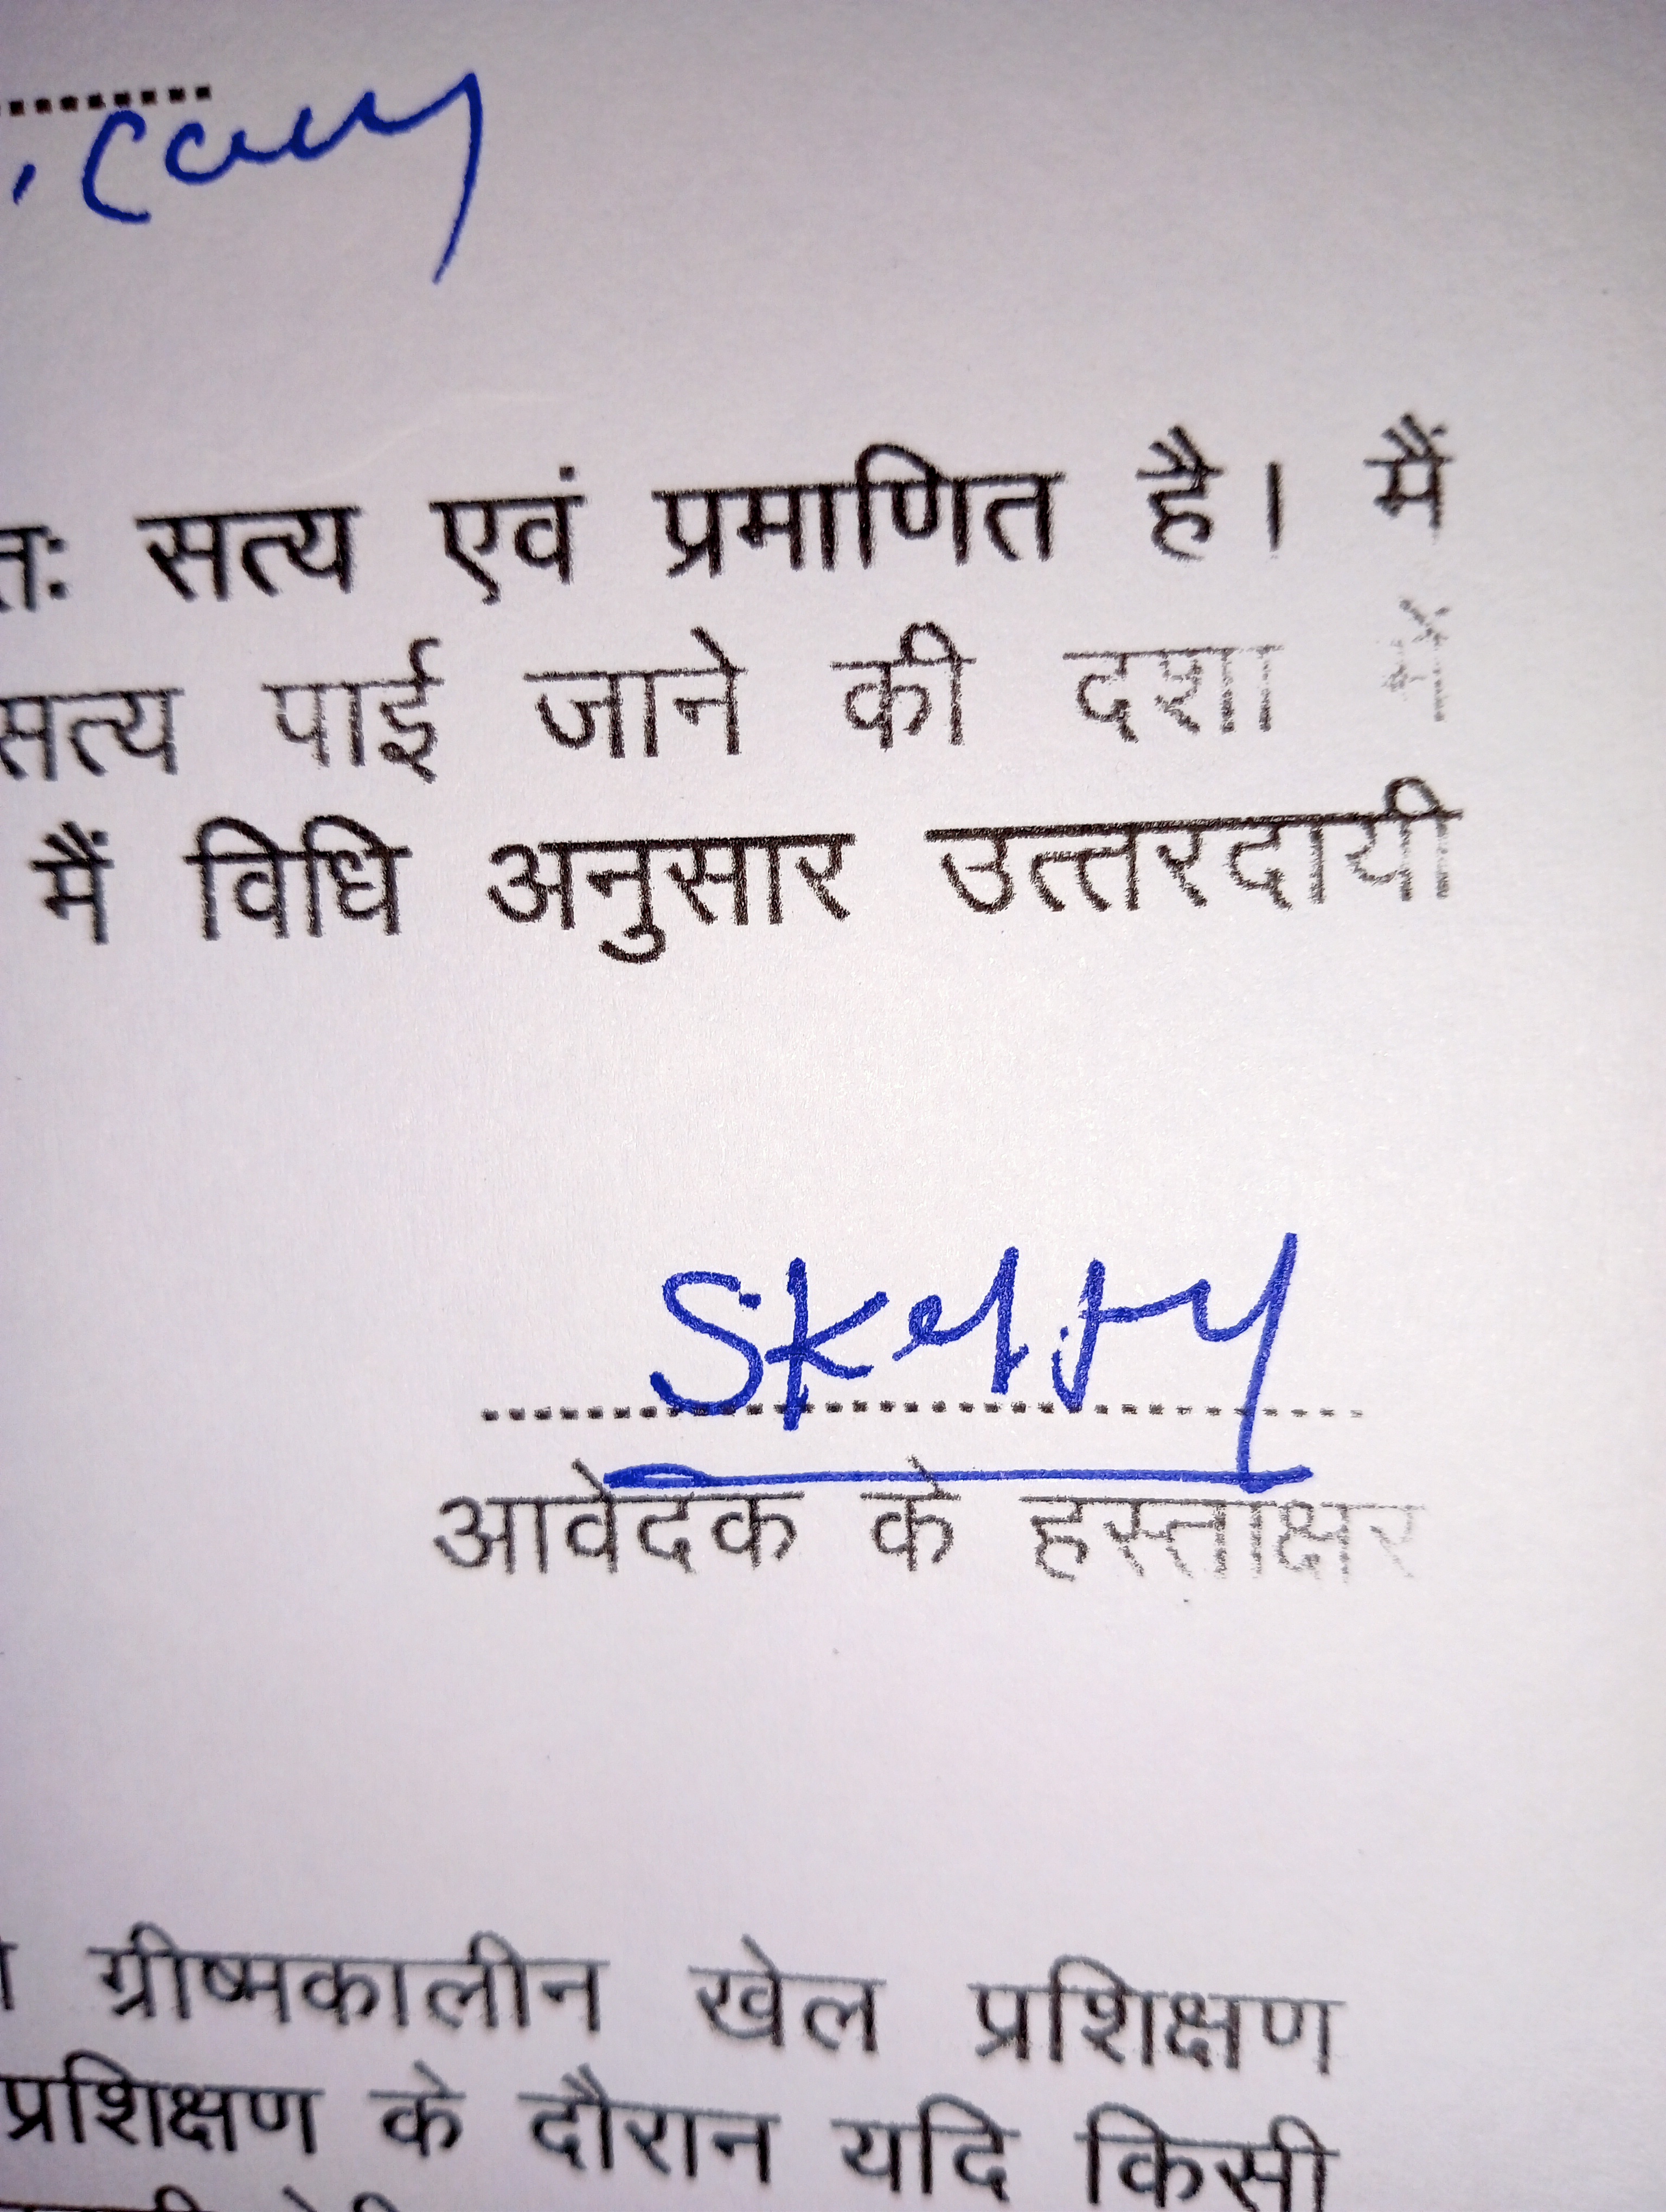 तः सत्य एवं प्रमाणित है। मैं
सत्य पाई जाने की दशा में
में विधि अनुसार उत्तरदायी
आवेदक के हस्ताक्षर
ग्रीष्मकालीन खेल प्रशिक्षण
प्रशिक्षण के दौरान यदि किसी